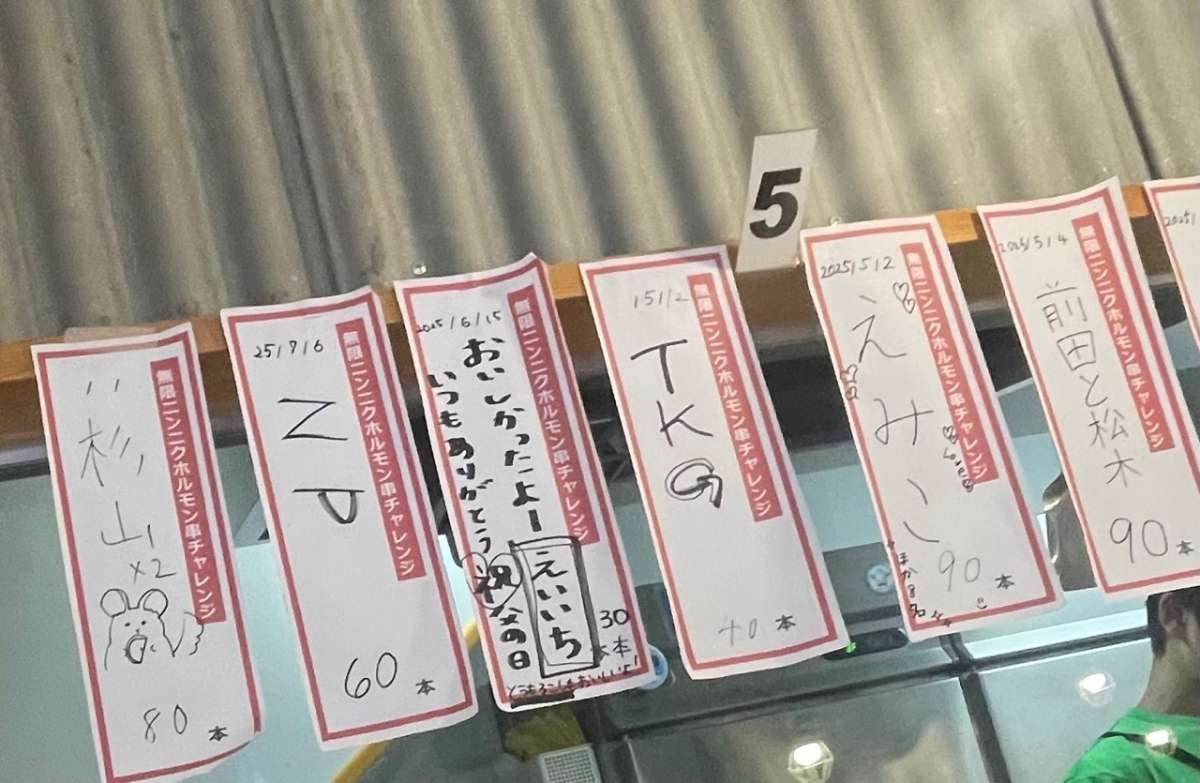 無限ニンニクホルモン串チャレンジ
杉山
×2
80
本
無限ニンニクホルモン串チャレンジ
25/7/6
NP
60
本
無限ニンニクホルモン串チャレンジ
2025/6/15
おいしかったよー
いつもありがとう
祝父の日
えいいち
30
本
5
無限ニンニクホルモン串チャレンジ
TKG
40
本
無限ニンニクホルモン串チャレンジ
2025/5/2
えみこ
Love
90
本
無限ニンニクホルモン串チャレンジ
2025/5/4
前田と松木
90
本
2025/